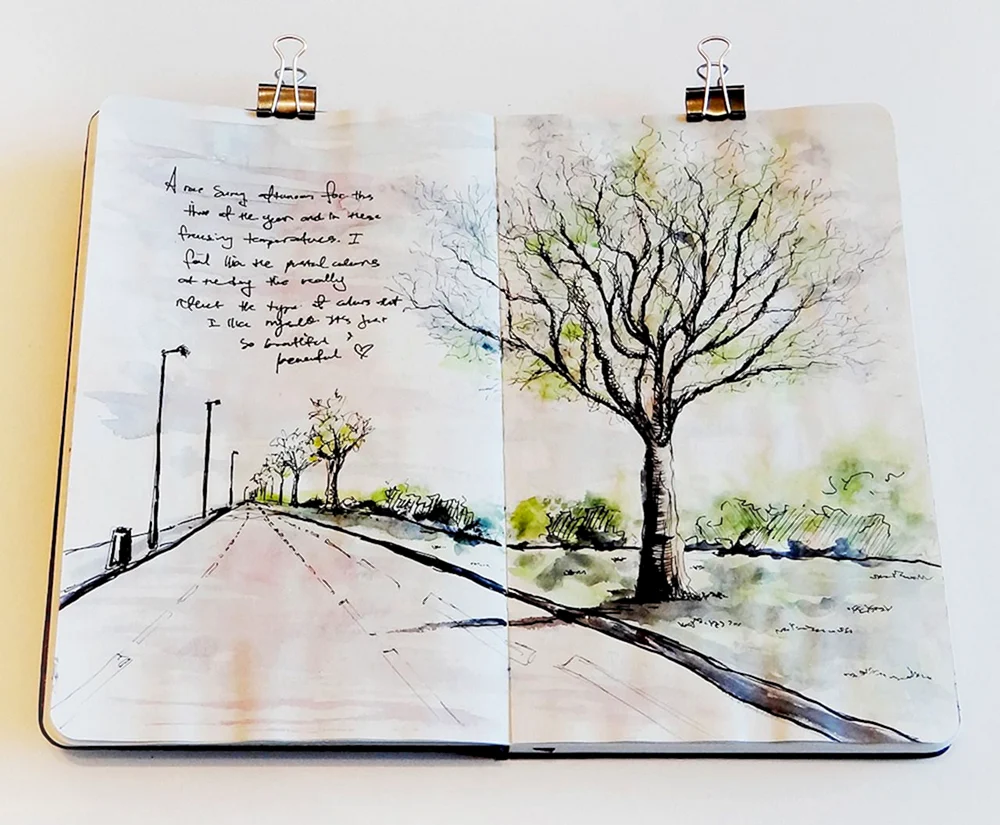 A rare Sunny afternoon for this
time of the year and in these
freezing temperatures. I
feel like the pastel colours
the really
reflect the type of colours that
I like myself. It's just
so beautiful &
peaceful ♡